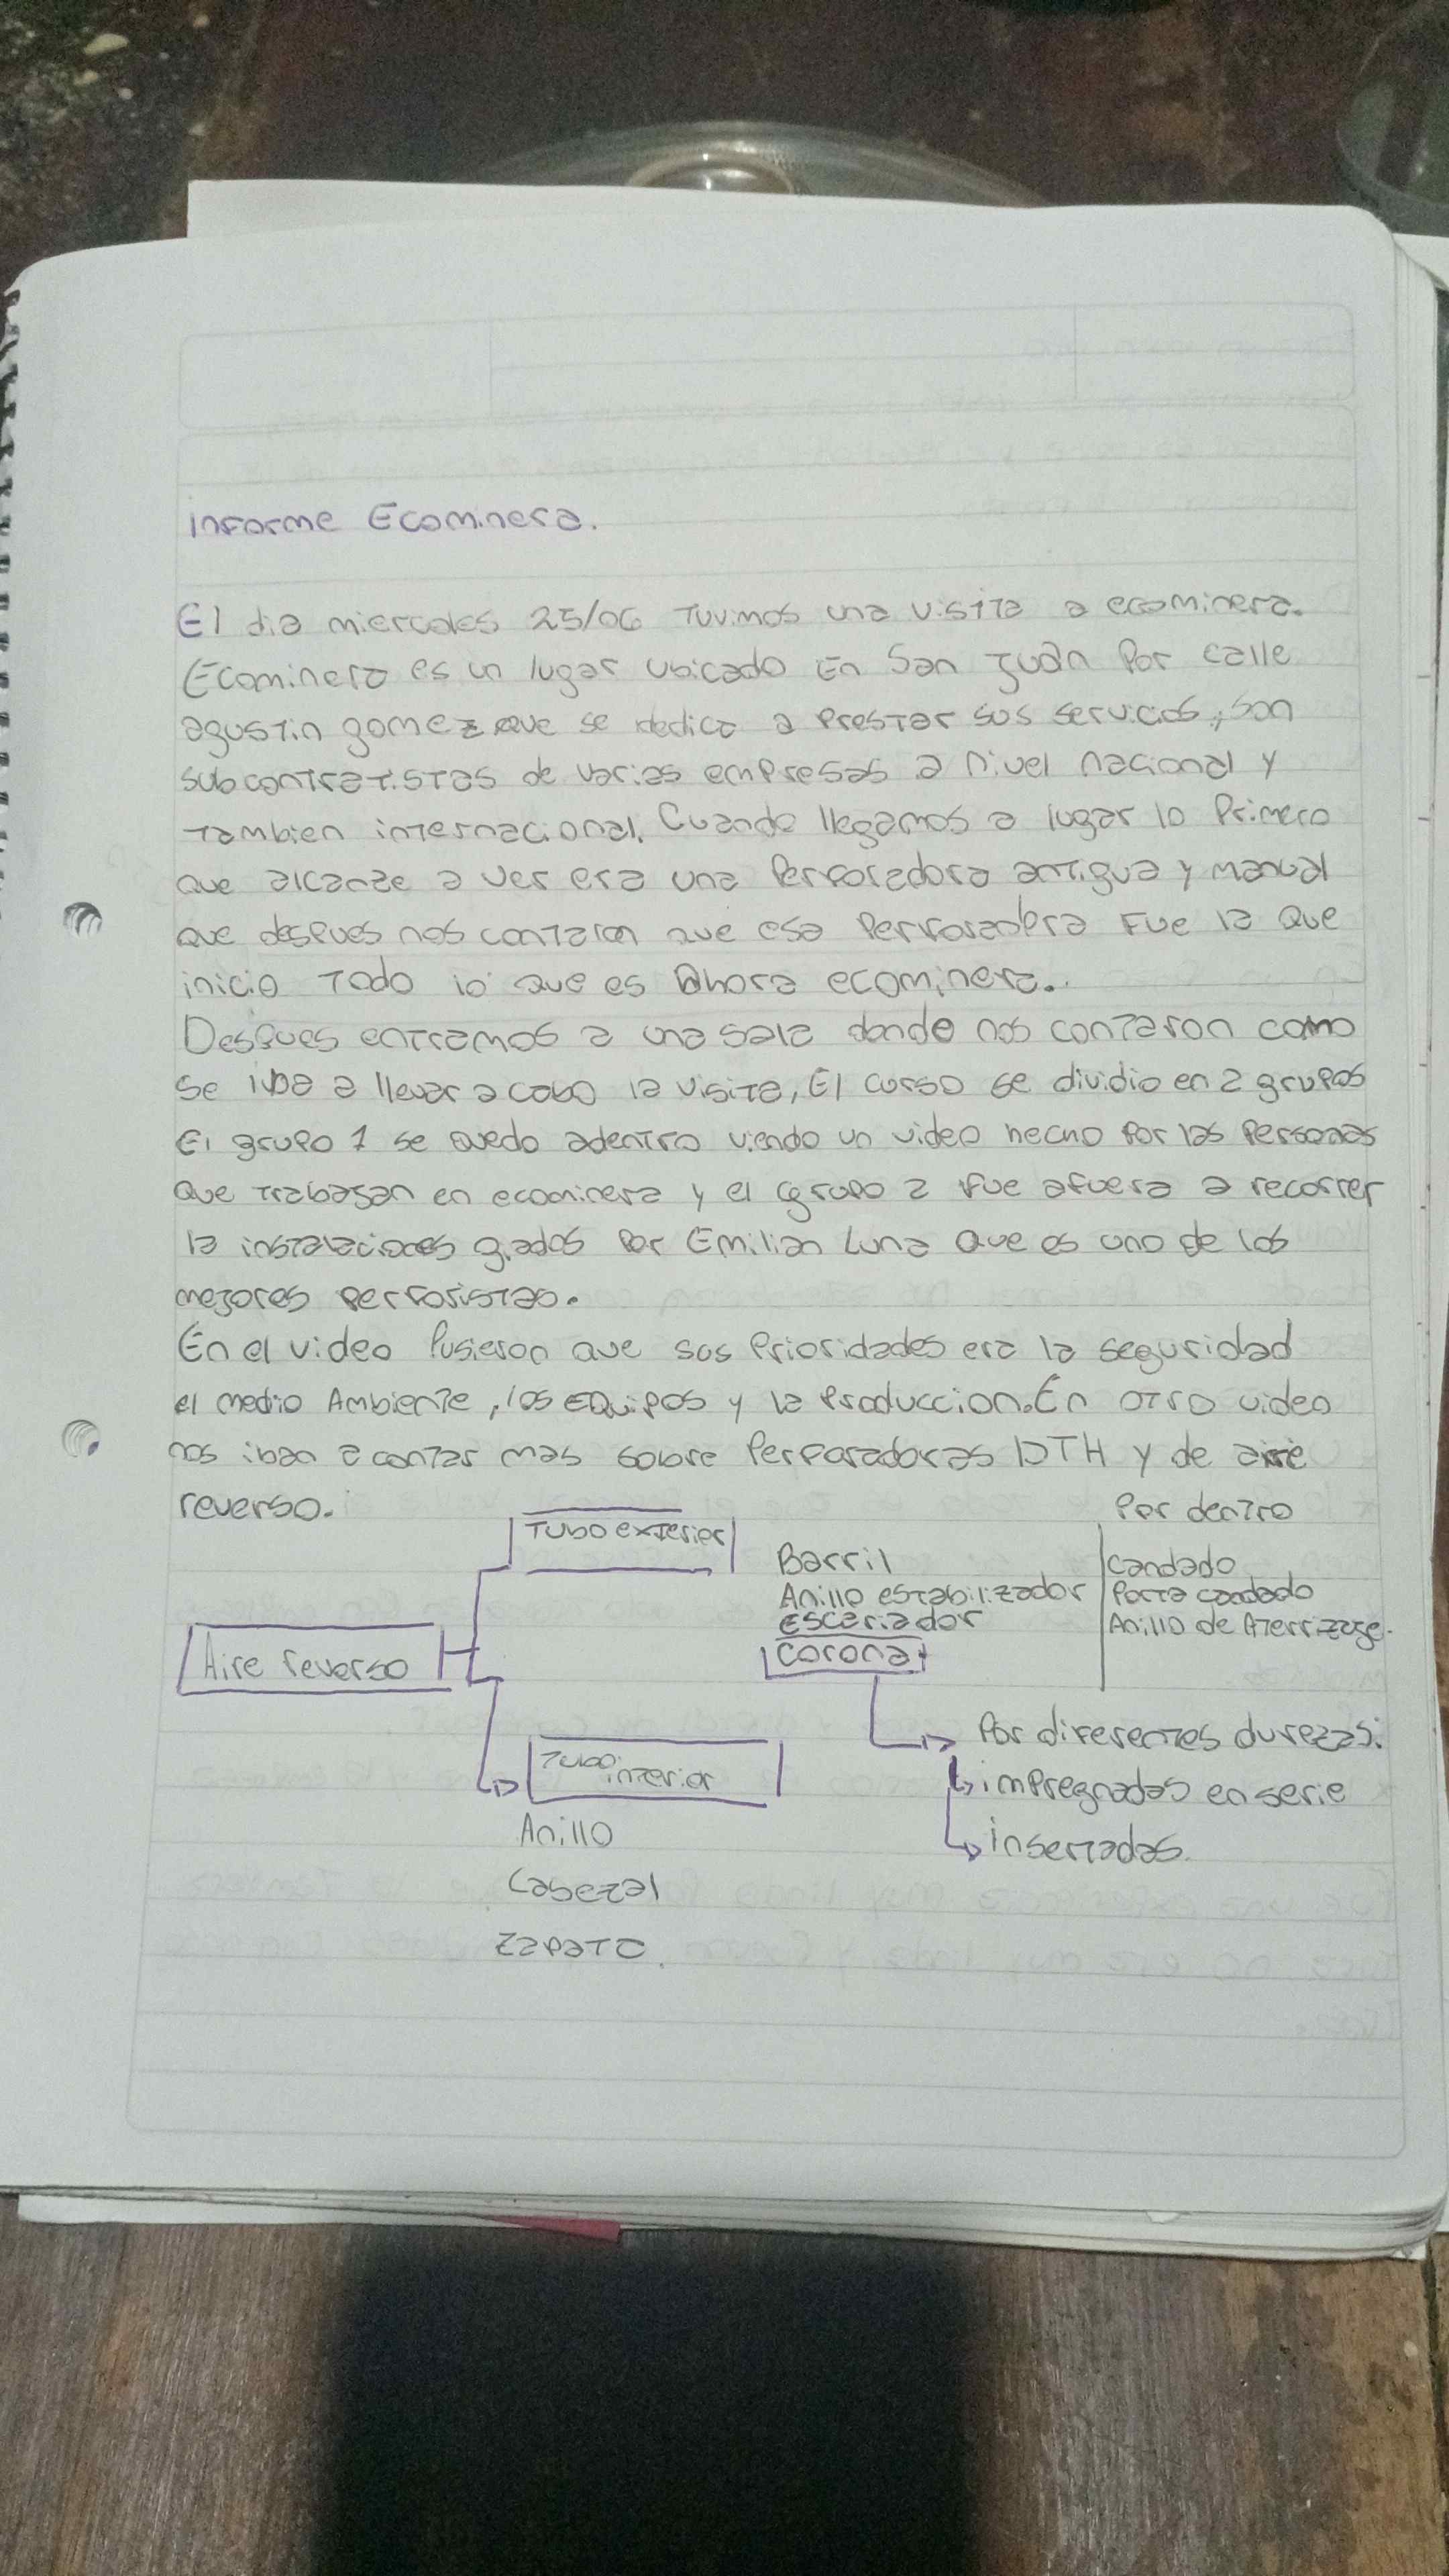 informe Ecominera.
El dia miercoles 25/06 Tuvimos una visita a ecominera.
Ecominera es un lugar ubicado En San Juan Por calle
agustin gomez que se dedica a Prestar sus servicios, son
subcontratistas de varias empresas a nivel nacional y
Tambien internacional. Cuando llegamos a lugar lo Primero
que alcanze a ver era una Perforadora antigua y manual
que despues nos contaron que esa Perforadora Fue la que
inicio Todo lo que es Ahora ecominera.
Despues entramos a una sala donde nos contaron como
se iba a llevar a cabo la visita, El curso se dividio en 2 grupos
El grupo 1 se quedo adentro viendo un video hecho por las Personas
que trabajan en ecominera y el grupo 2 fue afuera a recorrer
la instalaciones giados por Emilian Luna que es uno de los
mejores perforistas.
En el video Pusieron que sus Prioridades era la seguridad
el medio Ambiente, los EQuipos y la Produccion. En otro video
nos iban a contar mas sobre Perforadoras DTH y de aire
reverso.
Por dentro
Tubo exterior
Barril
Candado
Anillo estabilizador
Porta candado
escariador
Anillo de Aterrizage.
Corona
Aire reverso
Por diferentes durezas:
Tubo interior
impregnadas en serie
Anillo
insertadas.
Cabezal
Zapato.